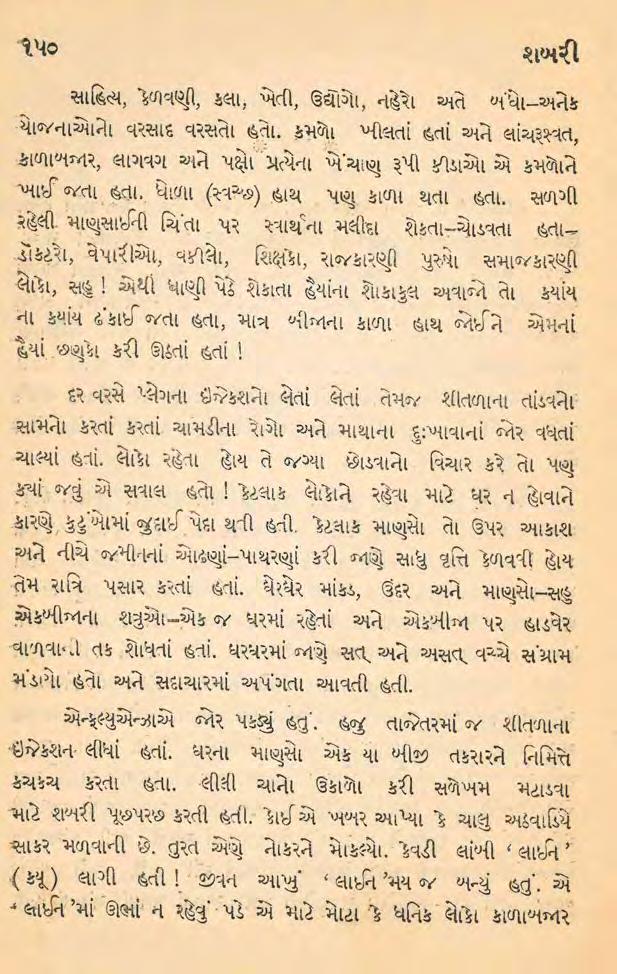 ૧૫૦
શબરી
સાહિત્ય, કેળવણી, કલા, ખેતી, ઉદ્યોગો, નહેરો અતે બંધો–અનેક
યોજનાઓનો વરસાદ વરસતો હતો. કમળો ખીલતાં હતાં અને લાંચરૂશ્વત,
કાળાબજાર, લાગવગ અને પક્ષો પ્રત્યેના ખેંચાણ રૂપી કીડાઓ એ કમળોને
ખાઈ જતા હતા. ધોળા (સ્વચ્છ) હાથ પણ કાળા થતા હતા. સળગી
રહેલી માણસાઈની ચિંતા પર સ્વાર્થના મલીદા શેકતા–ચોડવતા હતા–
ડૉકટરો, વેપારીઓ, વકીલો, શિક્ષકો, રાજકારણી પુરુષો સમાજકારણી
લોકો, સહુ ! એથી ધાણી પેઠે શેકાતા હૈયાંના શોકાકુલ અવાજો તો કયાંય
ના કયાંય ઢંકાઈ જતા હતા, માત્ર બીજાના કાળા હાથ જોઈને એમનાં
હૈયાં છણકો કરી ઊડતાં હતાં !
દર વરસે પ્લેગના ઇંજેકશનો લેતાં લેતાં તેમજ શીતળાના તાંડવનો
સામનો કરતાં કરતાં ચામડીના રોગો અને માથાના દુઃખાવાનાં જોર વધતાં
ચાલ્યાં હતાં. લોકો રહેતા હોય તે જગ્યા છોડવાનો વિચાર કરે તો પણ
કયાં જવું એ સવાલ હતો ! કેટલાક લોકોને રહેવા માટે ઘર ન હોવાને
કારણે કુટુંબોમાં જુદાઈ પેદા થતી હતી. કેટલાક માણસો તો ઉપર આકાશ
અને નીચે જમીનનાં ઓઢણાં–પાથરણાં કરી જાણે સાધુ વૃત્તિ કેળવવી હોય
તેમ રાત્રિ પસાર કરતાં હતાં. ઘેરઘેર માંકડ, ઉંદર અને માણસો–સહુ
એકબીજાના શત્રુઓ–એક જ ઘરમાં રહેતાં અને એકબીજા પર હાડવેર
વાળવાની તક શોધતાં હતાં. ઘરઘરમાં જાણે સત્ અને અસત્ વચ્ચે સંગ્રામ
મંડાણો હતો અને સદાચારમાં અપંગતા આવતી હતી.
એન્ફ્લ્યુએન્ઝાએ જોર પકડ્યું હતું. હજુ તાજેતરમાં જ શીતળાના
ઇંજેકશન લીધાં હતાં. ઘરના માણસો એક યા બીજી તકરારને નિમિત્તે
કચકચ કરતા હતા. લીલી ચાનો ઉકાળો કરી સળેખમ મટાડવા
માટે શબરી પૂછપરછ કરતી હતી. કોઈએ ખબર આપ્યા કે ચાલુ અઠવાડિયે
સાકર મળવાની છે. તુરત એણે નોકરને મોકલ્યો. કેવડી લાંબી ‘ લાઈન ’
( કયૂ ) લાગી હતી ! જીવન આખું ‘ લાઈન ’મય જ બન્યું હતું. એ
‘ લાઈન ’માં ઊભાં ન રહેવું પડે એ માટે મોટા કે ધનિક લોકો કાળાબજાર